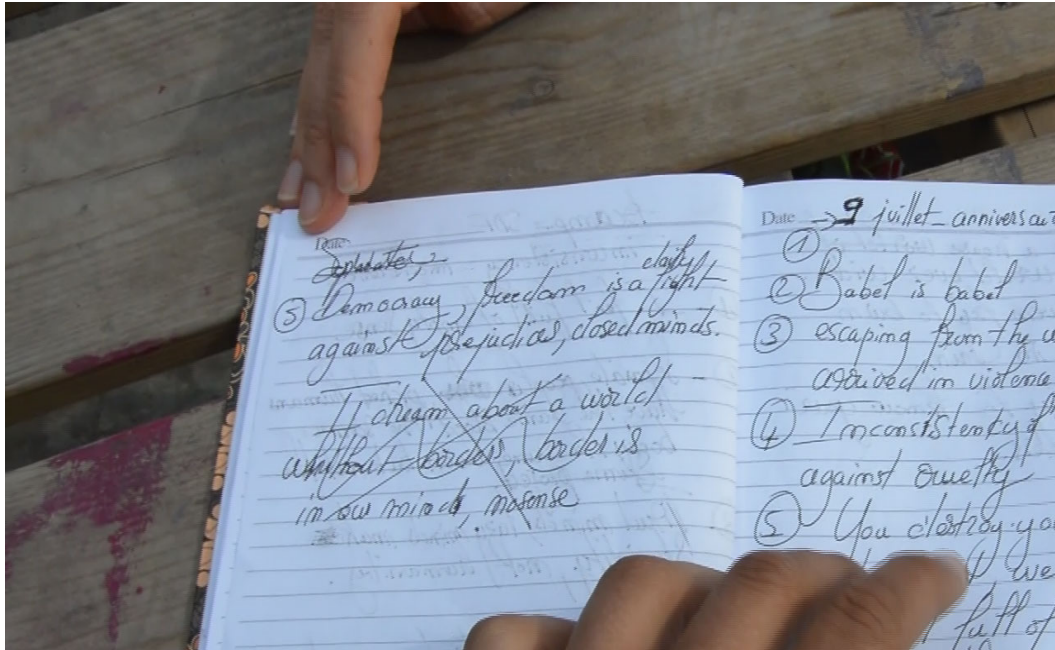 Date
daily
Democracy, freedom is a fight
against prejudices, closed minds.
I dream about a world
whithout borders, border is
in our mind, nosense
Date → 9 juillet_anniversai
①
② Babel is babel
③ escaping from the
arrived in violence
④ Inconsistenty of
against cruelty
⑤ You destroy yo
we
full of